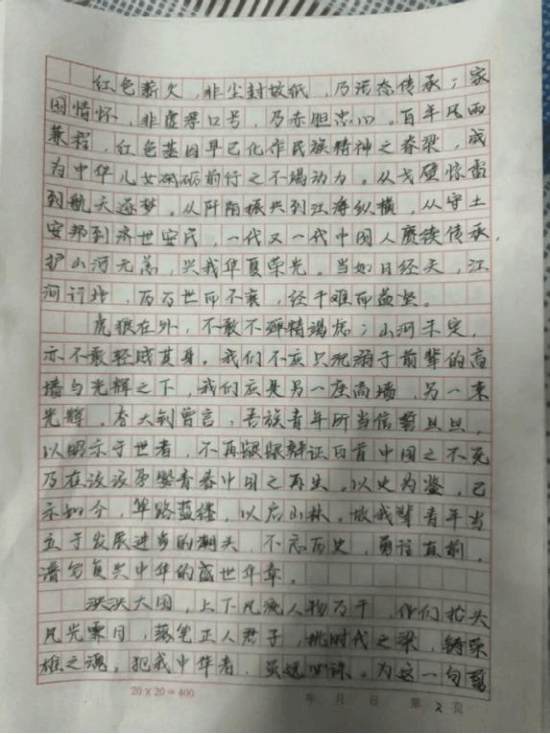 红色薪火，非尘封故纸，乃活态传承；家
国情怀，非虚浮口号，乃赤胆忠心。百年风雨
兼程，红色基因早已化作民族精神之脊梁，成
为中华儿女砥砺前行之不竭动力。从戈壁惊雷
到航天逐梦。从阡陌振兴到江海纵横，从守土
安邦到济世安民，一代又一代中国人赓续传承，
护山河无恙，兴我华夏荣光。当如日经天，江
河行地，历万世而不衰，经千难而益坚。
虎狼在外，不敢不殚精竭虑；山河未定，
亦不敢轻贱其身。我们不应只沉溺于前辈的高
墙与光辉之下，我们应是另一座高墙，另一束
光辉。李大钊曾言，吾族青年所当信誓旦旦，
以昭示于世者，不再龈龈辩证白首中国之不死
乃在汲汲孕育青春中国之再生。以史为鉴，己
示如今，筚路蓝缕，以启山林。故我辈青年当
立于发展进步的潮头，不忘历史，勇往直前，
谱写复兴中华的盛世华章。
泱泱大国，上下风流人物万千，他们抬头
风光霁月，落笔正人君子，挑时代之梁，铸英
雄之魂。犯我中华者，虽远必诛。为这一句
20×20=400
年 月 日 第 2 页